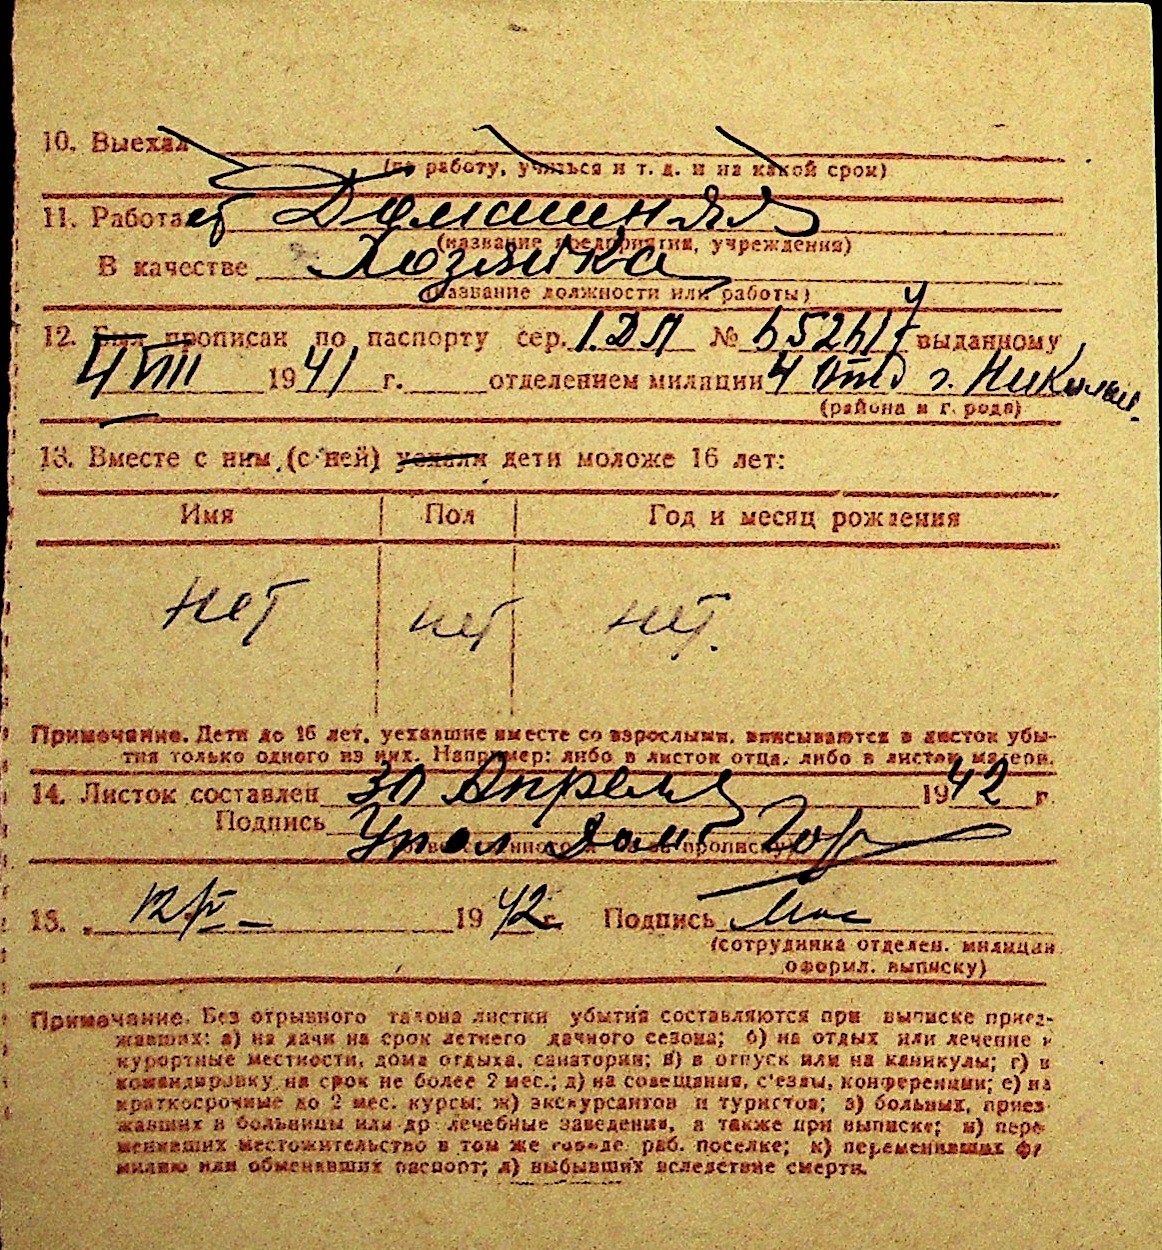 10. Выехал
(на работу, учиться и т. д. и на какой срок)
11. Работает Домашняя
(название предприятия, учреждения)
В качестве Хозяйка
(название должности или работы)
12. Был прописан по паспорту сер. I ДЛ № 652617 выданному
4 VIII 1941 г. отделением милиции 4 отд г. Николаев.
(района и города)
13. Вместе с ним (с ней) уехали дети моложе 16 лет:
Имя Пол Год и месяц рождения
нет нет нет.
Примечание. Дети до 16 лет, уехавшие вместе со взрослыми, вписываются в листок убы-
тия только одного из них. Например: либо в листок отца, либо в листок матери.
14. Листок составлен 30 Апреля 1942 г.
Подпись Упол. Дом
15. 12/V 1942 г. Подпись
(сотрудника отделен. милиции
оформл. выписку)
Примечание. Без отрывного талона листки убытия составляются при выписке приез-
жавших: а) на дачи на срок летнего дачного сезона; б) на отдых или лечение в
курортные местности, дома отдыха, санатории; в) в отпуск или на каникулы; г) в
командировку на срок не более 2 мес.; д) на совещания, с'езды, конференции; е) на
краткосрочные до 2 мес. курсы; ж) экскурсантов и туристов; з) больных, приез-
жавших в больницы или др лечебные заведения, а также при выписке; и) пере-
менивших местожительство в том же городе раб. поселке; к) переменивших фа
милию или обменявших паспорт; л) выбывших вследствие смерти.